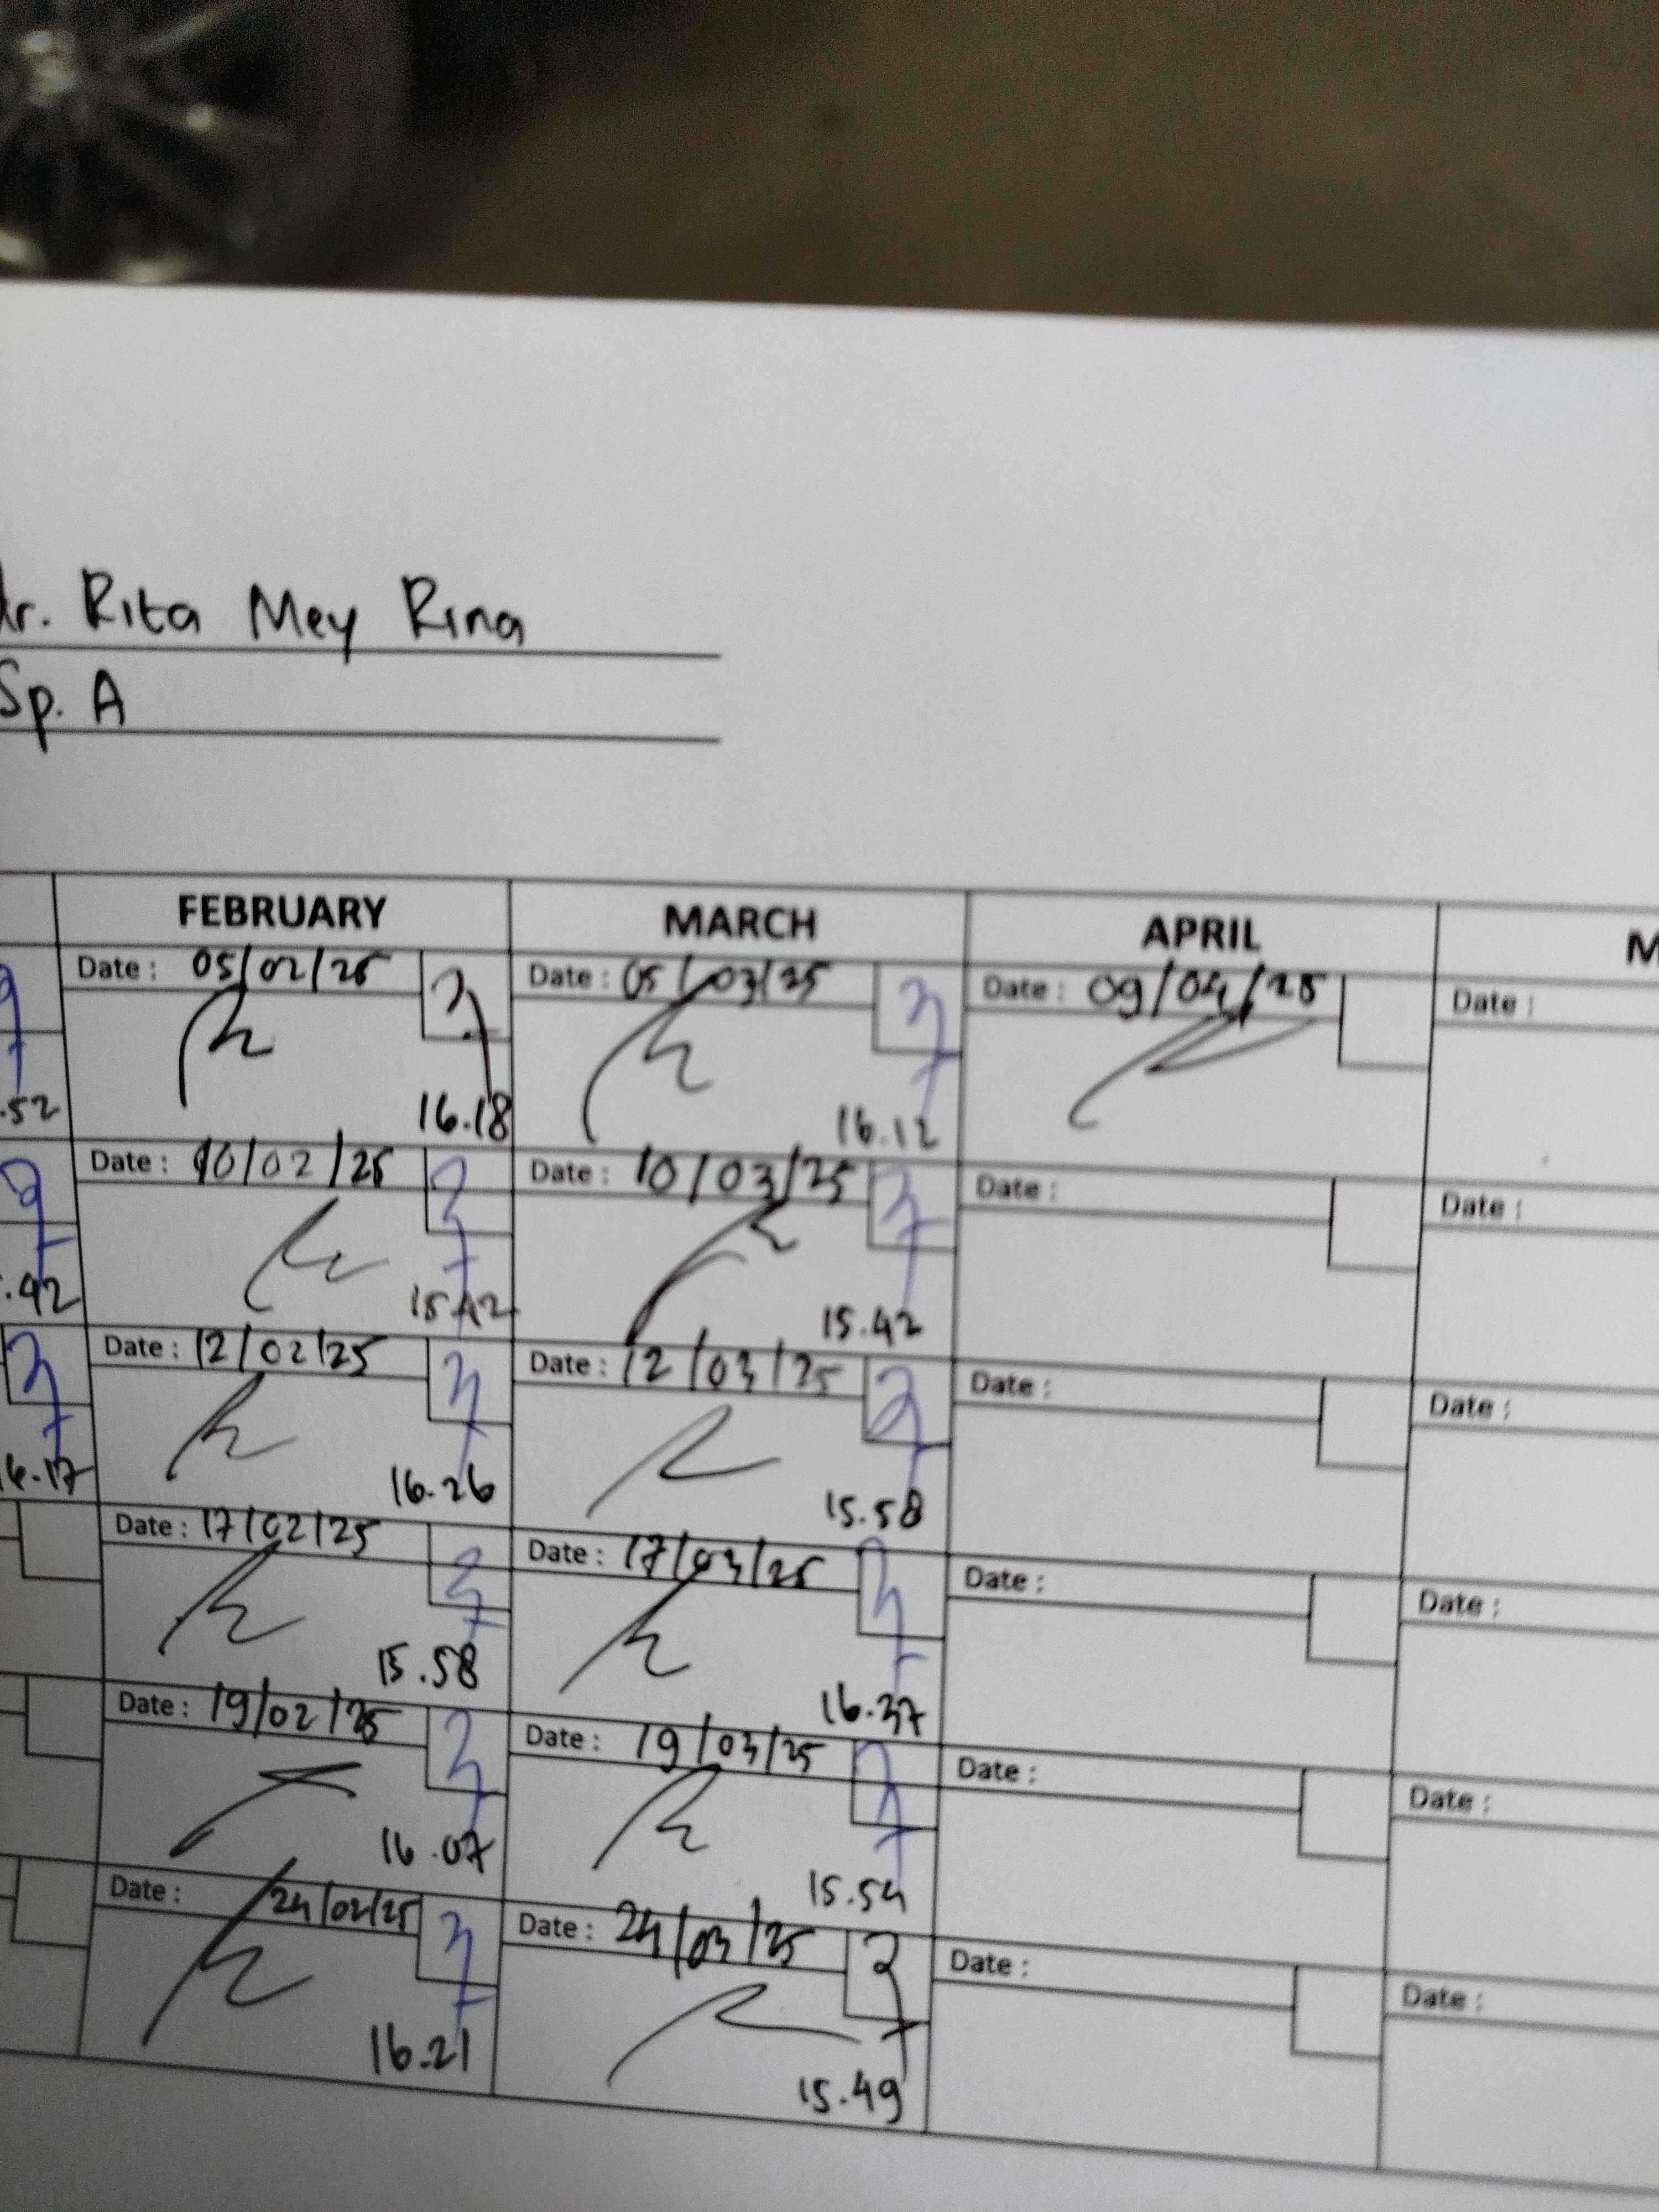 dr. Rita Mey Rina
Sp. A
FEBRUARY MARCH APRIL M
Date : 05/02/25 Date : 05/03/25 Date : 09/04/25 Date :
.52 16.18 16.12
Date : 10/02/25 Date : 10/03/25 Date : Date :
.42 15.42 15.42
Date : 12/02/25 Date : 12/03/25 Date : Date :
16.17 16.26 15.58
Date : 17/02/25 Date : 17/03/25 Date : Date :
15.58 16.37
Date : 19/02/25 Date : 19/03/25 Date : Date :
16.07 15.54
Date : 24/02/25 Date : 24/03/25 Date : Date :
16.21 15.49